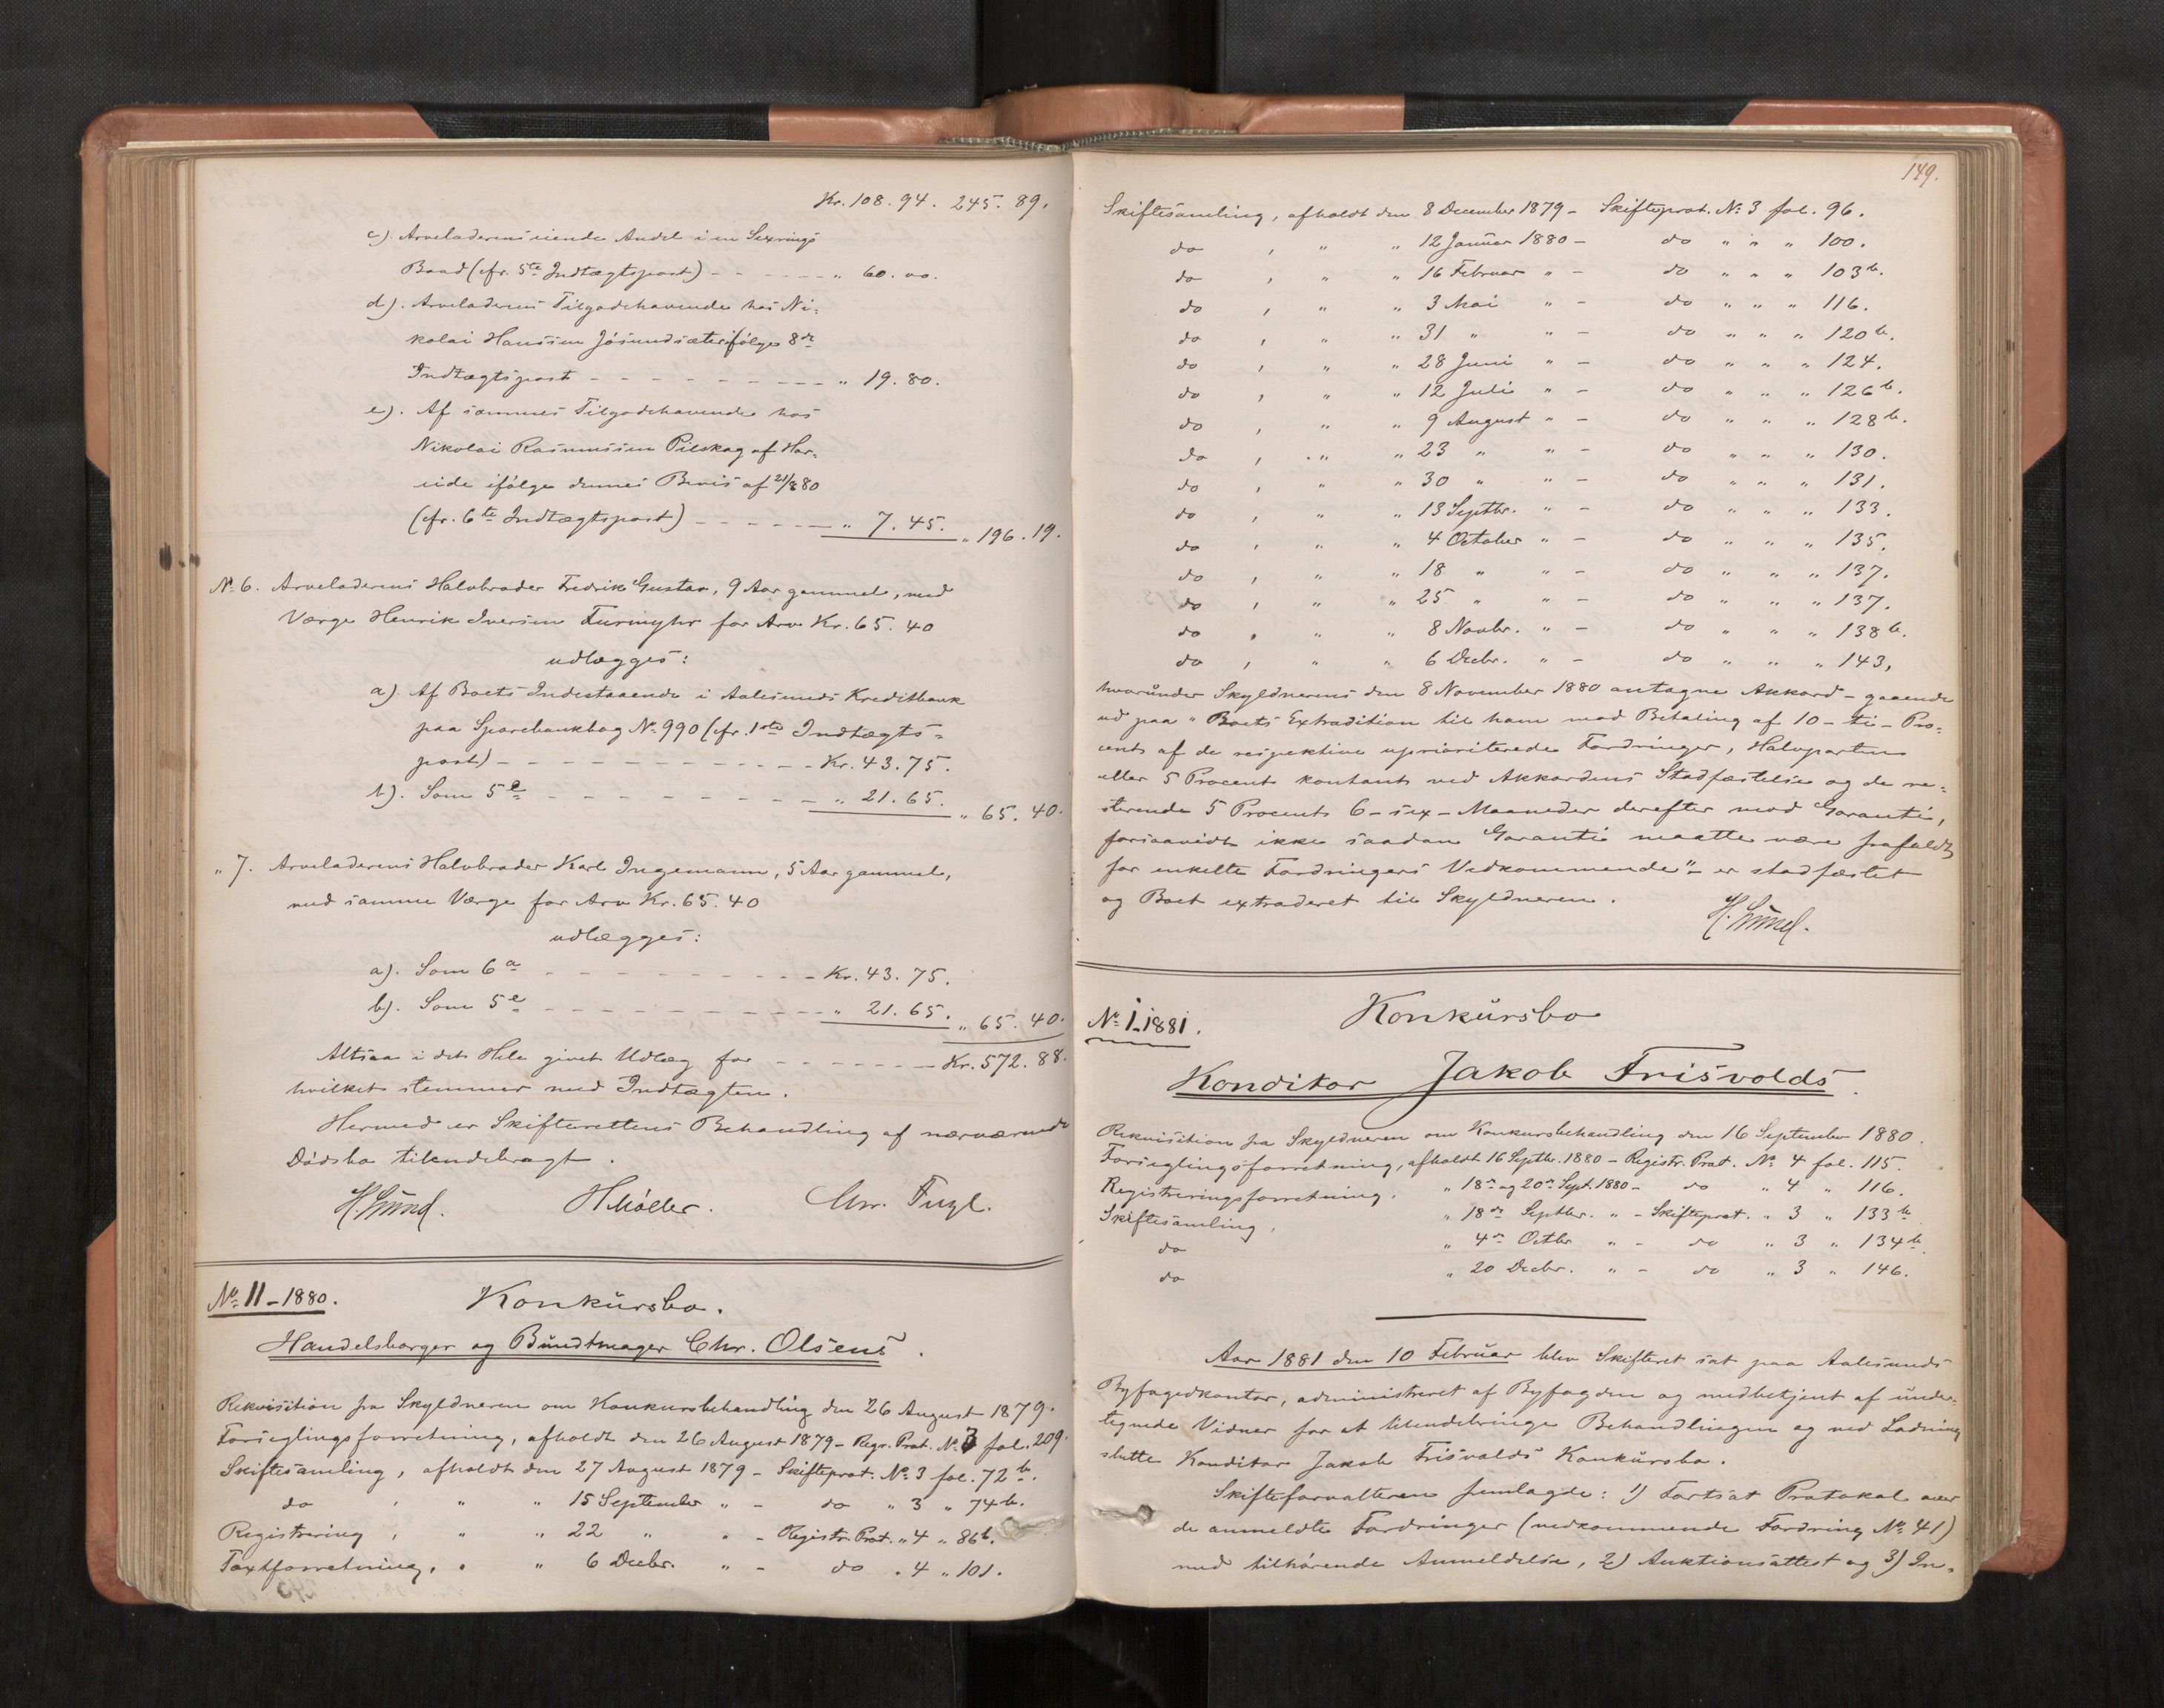 Kr. 108. 94. 245. 89.
c). Arveladerens eiende Andel i en Sexrings
Baad (cfr. 5te Indtægtspost) - - - - - - " 60. 00.
d). Arveladerens Tilgodehavende hos Ni-
kolai Hanssen Jösundsæter ifölge 8de
Indtægtspost - - - - - - - - - - " 19. 80.
e). Af sammes Tilgodehavende hos
Nikolai Rasmussen Pilskog af Har-
eide ifölge dennes Bevis af 21/8 80
(cfr. 6te Indtægtspost) - - - - - - " 7. 45. " 196. 19.
No 6. Arveladerens Halvbroder Fredrik Gustav, 9 Aar gammel, med
Værge Henrik Iversen Furmyhr for Arv Kr. 65. 40
udlægges:
a). Af Boets Indestaaende i Aalesunds Kreditbank
paa Sparebankbog No 990 (cfr. 1ste Indtægts-
post) - - - - - - - - - - - Kr. 43. 75.
b). Som 5e - - - - - - - - - " 21. 65. " 65. 40.
" 7. Arveladerens Halvbroder Karl Ingemann, 5 Aar gammel,
med samme Værge for Arv Kr. 65. 40
udlægges:
a). Som 6a - - - - - - - - - Kr. 43. 75.
b). Som 5e - - - - - - - - - " 21. 65. " 65. 40.
Altsaa i det Hele givet Udlæg for - - - - - - - Kr. 572. 88.
hvilket stemmer med Indtægten.
Hermed er Skifterettens Behandling af nærværende
Dödsbo tilendebragt.
H. Lund. H Möller. Chr. Fugl.
No 11-1880. Konkursbo.
Handelsborger og Bundtmager Chr. Olsens.
Rekvisition fra Skyldneren om Konkursbehandling den 26 August 1879.
Forseglingsforretning, afholdt den 26 August 1879 - Regr. Prot. No 3 fol. 209.
Skiftesamling, afholdt den 27 August 1879 - Skifteprot. No 3 fol. 72b.
do , " " 15 September " - do " 3 " 74b.
Registrering , " " 22 " " - Registr. Prot. " 4 " 86b.
Taxtforretning, " " 6 Decbr. " - do " 4 " 101.
149.
Skiftesamling, afholdt den 8 December 1879 - Skifteprot. No 3 fol. 96.
do , " " 12 Januar 1880 - do " " " 100.
do , " " 16 Februar " - do " " " 103b.
do , " " 3 Mai " - do " " " 116.
do , " " 31 " " - do " " " 120b.
do , " " 28 Juni " - do " " " 124.
do , " " 12 Juli " - do " " " 126b.
do , " " 9 August " - do " " " 128b.
do , " " 23 " " - do " " " 130.
do , " " 30 " " - do " " " 131.
do , " " 13 Septbr. " - do " " " 133.
do , " " 4 October " - do " " " 135.
do , " " 18 " " - do " " " 137.
do , " " 25 " " - do " " " 137.
do , " " 8 Novbr. " - do " " " 138b.
do , " " 6 Decbr. " - do " " " 143,
hvorunder Skyldnerens den 8 November 1880 antagne Akkord - gaaende
ud paa "Boets Extradition til ham mod Betaling af 10 - ti - Pro-
cent af de respektive uprioriterede Fordringer, Halvparten
eller 5 Procent kontant ved Akkordens Stadfæstelse og de re-
sterende 5 Procent 6 - sex - Maaneder derefter mod Garanti,
forsaavidt ikke saadan Garanti maatte være frafaldt
for enkelte Fordringers Vedkommende" - er stadfæstet
og Boet extraderet til Skyldneren.
H. Lund.
No 1-1881. Konkursbo
Konditor Jakob Frisvolds.
Rekvisition fra Skyldneren om Konkursbehandling den 16 September 1880.
Forseglingsforretning, afholdt 16 Septbr. 1880 - Registr. Prot. No 4 fol. 115.
Registreringsforretning, " 18de og 20de Sept. 1880 - do " 4 " 116.
Skiftesamling, " 18de Septbr. " - Skifteprot. " 3 " 133b.
do " 4de Octbr " - do " 3 " 134b.
do " 20 Decbr. " - do " 3 " 146.
Aar 1881 den 10 Februar blev Skifteret sat paa Aalesunds
Byfogedkontor, administreret af Byfogden og medbetjent af under-
tegnede Vidner for at tilendebringe Behandlingen og ved Lodning
slutte Konditor Jakob Frisvolds Konkursbo.
Skifteforvalteren fremlagde: 1) Fortsat Protokol over
de anmeldte Fordringer (vedkommende Fordring No 41)
med tilhörende Anmeldelse, 2) Auktionsattest og 3) In-